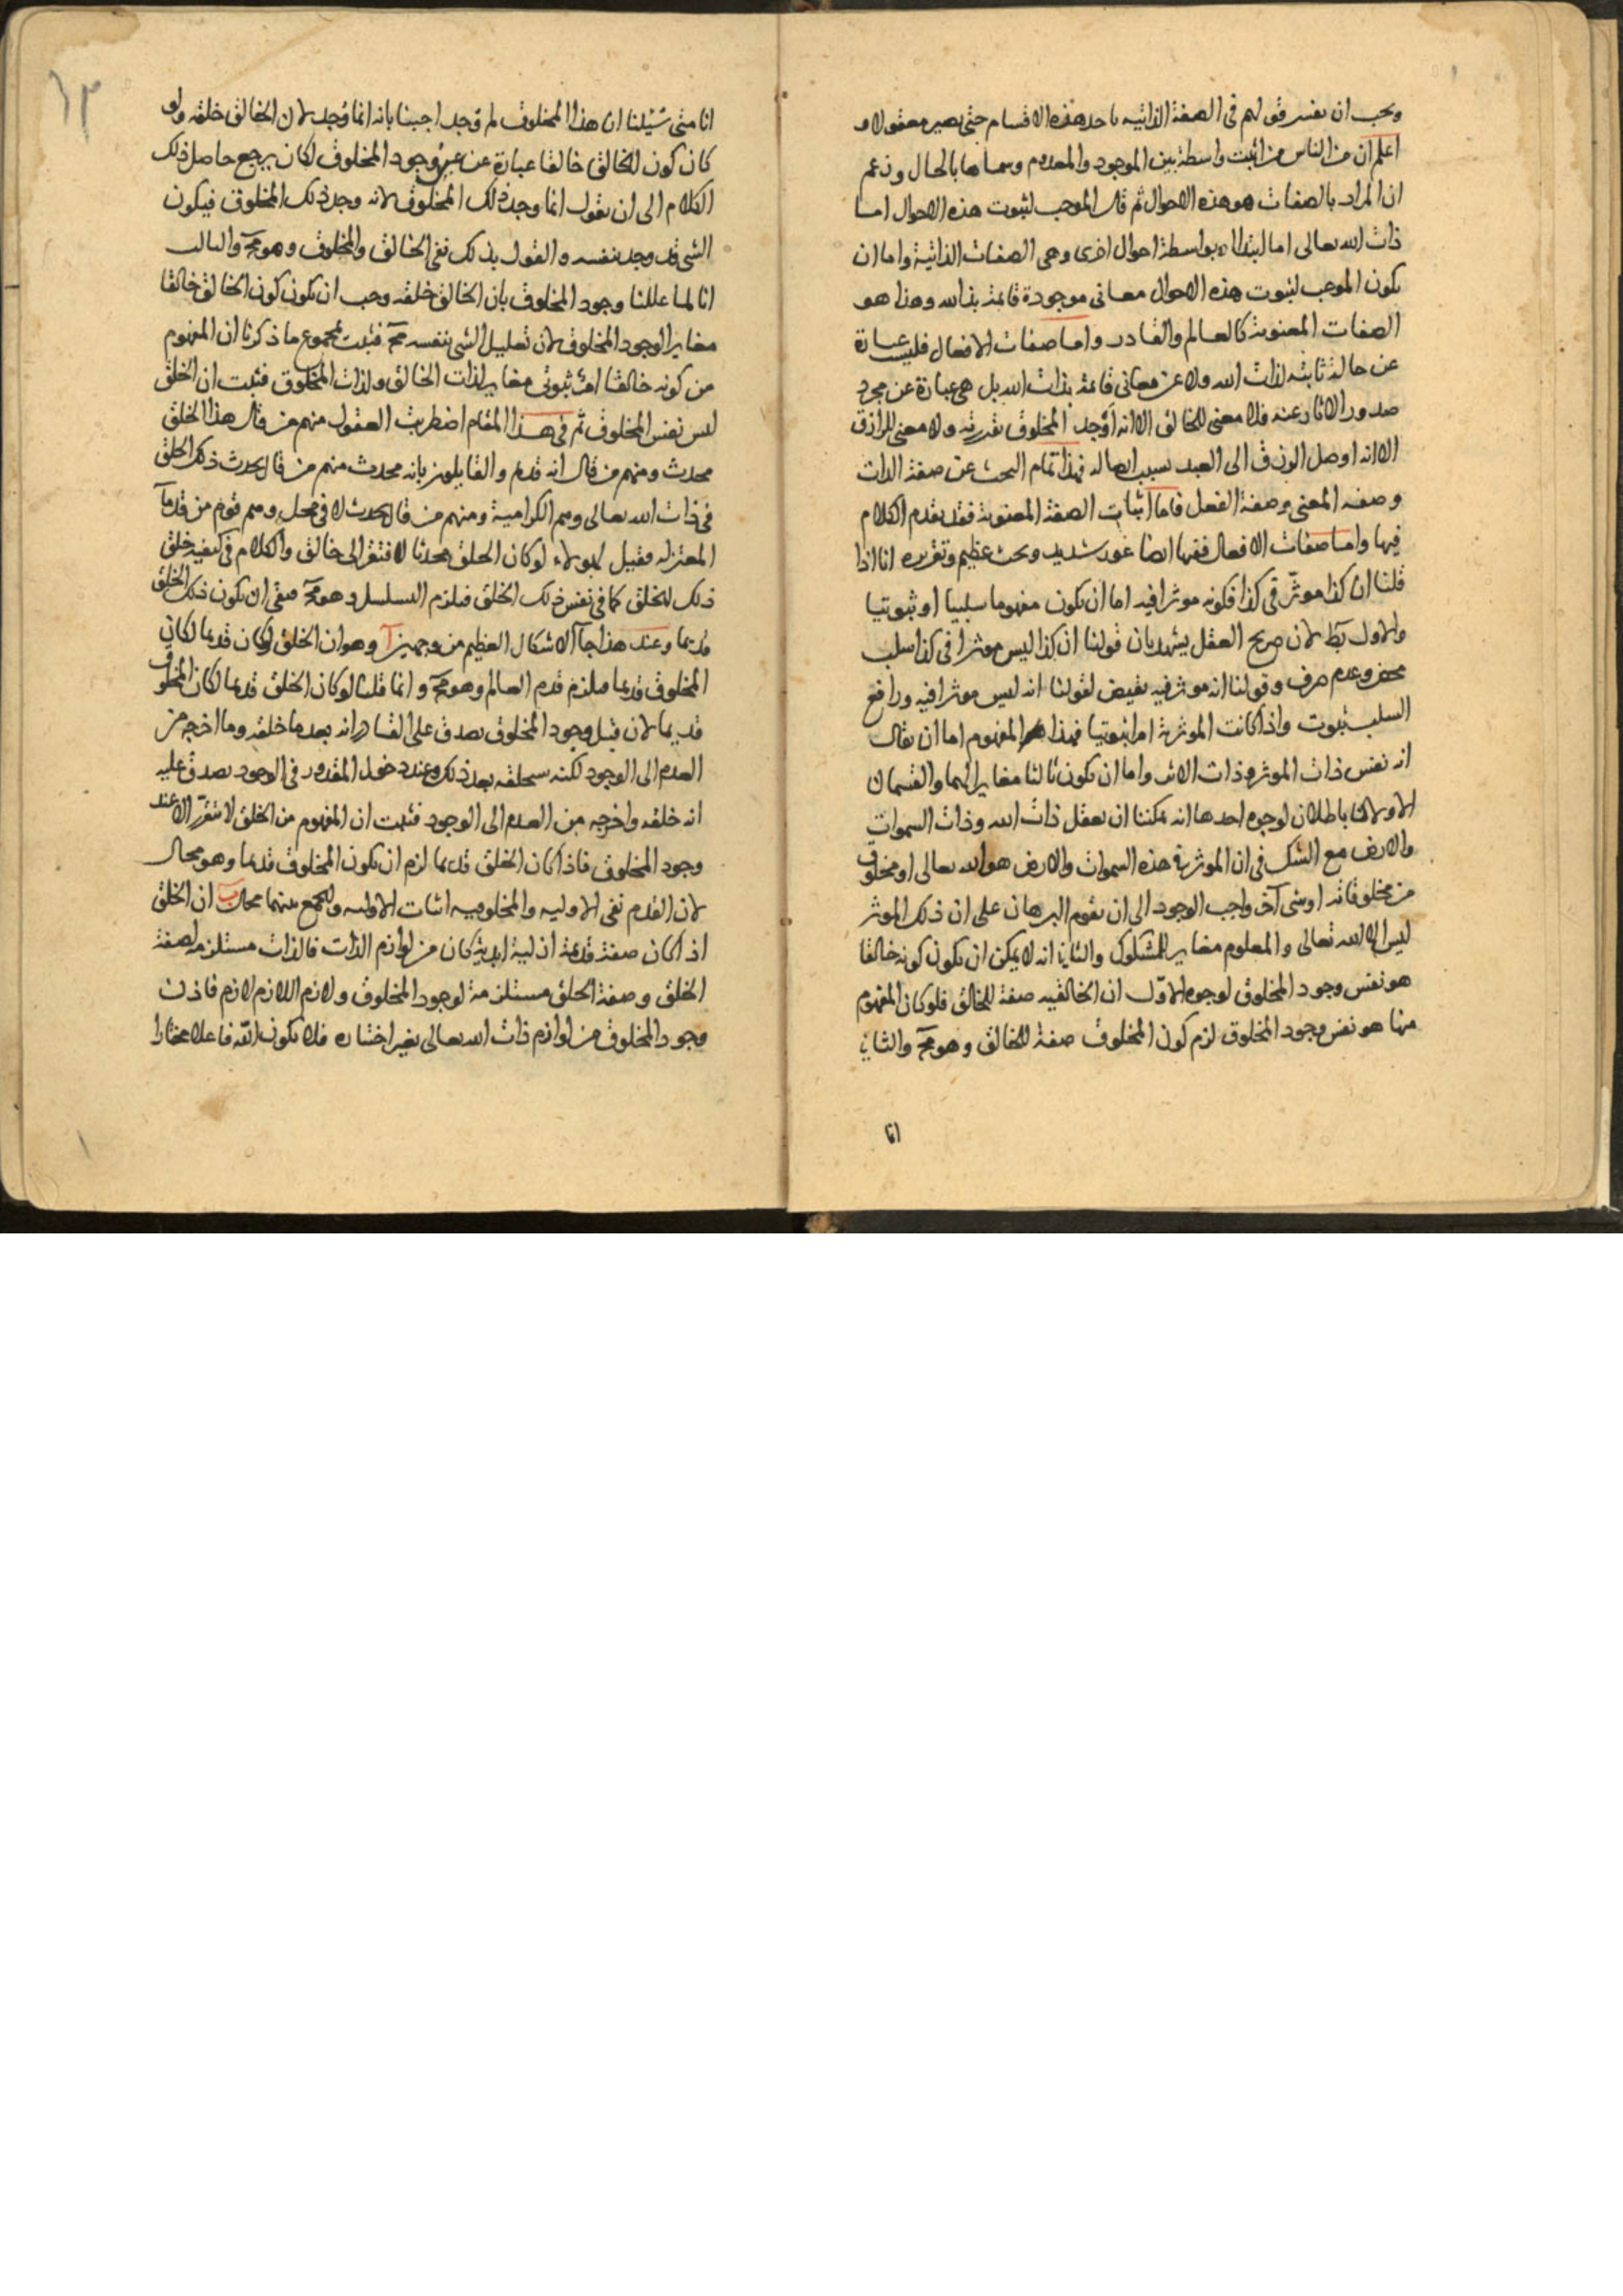 ويجب ان نفسر قولهم فى الصفة الذاتيه باحد هذه الاقسام حتى يصير معقولا و
اعلم ان من الناس من اثبت واسطة بين الموجود والمعدوم وسماها بالحال وزعم
ان المراد بالصفات هو هذه الاحوال ثم قال الموجب لثبوت هذه الاحوال اما
ذات الله تعالى اما ابتداء او بواسطة احوال اخرى وهى الصفات الذاتية واما ان
يكون الموجب لثبوت هذه الاحوال معانى موجودة قائمة بذات الله وهذا هو
الصفات المعنوية كالعالم والقادر واما صفات الافعال فليس عبارة
عن حالة ثابته لذات الله ولا عن معانى قائمة بذات الله بل هى عبارة عن مجرد
صدور الاثار عنه فلا معنى للخالق الا انه اوجد المخلوق بقدرته ولا معنى للرازق
الا انه اوصل الرزق الى العبد بسبب ايصاله فهذا تمام البحث عن صفة الذات
وصفه المعنى وصفة الفعل فاما اثبات الصفة المعنوية فقد تقدم الكلام
فيها واما صفات الافعال ففيها ايضا غور شديد وبحث عظيم وتقريره انا اذا
قلنا ان كذا موثّر فى كذا فكونه موثرا فيه اما ان يكون مفهوما سلبيا او ثبوتيا
والاول بط لان صريح العقل يشهد بان قولنا ان كذا ليس موثرا فى كذا سلب
محض وعدم صرف وقولنا انه موثر فيه نقيض لقولنا انه ليس موثرا فيه ورافع
السلب ثبوت واذا كانت الموثرية امرا ثبوتيا فهذا المفهوم اما ان يقال
انه نفس ذات الموثر وذات الاثر واما ان يكون ثالثا مغايرا لهما والقسمان
الاولان باطلان لوجوه احدها انه يمكننا ان نعقل ذات الله وذات السموات
والارض مع الشك فى ان الموثر فى هذه السموات والارض هو الله تعالى او مخلوق
من مخلوقاته او شى آخر واجب الوجود الى ان يقوم البرهان على ان ذلك الموثر
ليس الا الله تعالى والمعلوم مغاير للمشكوك والثانى انه لا يمكن ان يكون كونه خالقا
هو نفس وجود المخلوق لوجوه الاوّل ان الخالقيه صفة للخالق فلو كان المفهوم
منها هو نفس وجود المخلوق لزم كون المخلوق صفة للخالق وهو مح والثانى
انا
١٣
انا متى سئلنا ان هذا المخلوق لم وجد اجبنا بانه انما وجد لان الخالق خلقه ولو
كان كون الخالق خالقا عبارة عن عين وجود المخلوق لكان يرجع حاصل ذلك
الكلام الى ان نقول انما وجد ذلك المخلوق لانه وجد ذلك المخلوق فيكون
الشى قد وجد بنفسه والقول بذلك نفى الخالق والمخلوق وهو مح والثالث
انا لما عللنا وجود المخلوق بان الخالق خلقه وجب ان يكون كون الخالق خالقا
مغايرا لوجود المخلوق لان تعليل الشى بنفسه مح فثبت بمجموع ما ذكرنا ان المفهوم
من كونه خالقا امر ثبوتى مغاير لذات الخالق ولذات المخلوق فثبت ان الخلق
ليس نفس المخلوق ثم فى هذا المقام اضطربت العقول منهم من قال هذا الخلق
محدث ومنهم من قال انه قديم والقايلون بانه محدث منهم من قال يحدث ذلك الخلق
فى ذات الله تعالى وهم الكرامية ومنهم من قال يحدث لا فى محل وهم قوم من قدمآ
المعتزله فقيل لهولاء لو كان الخلق محدثا لافتقر الى خالق والكلام فى كيفيه خلق
ذلك الخلق كما فى نفس ذلك الخلق فيلزم التسلسل وهو مح فبقى ان يكون ذلك الخلق
قديما وعند هذا جآ الاشكال العظيم من وجهين آ وهو ان الخلق لو كان قديما لكان
المخلوق قديما فيلزم قدم العالم وهو مح وانما قلنا لو كان الخلق قديما لكان المخلوق
قديما لان قبل وجود المخلوق يصدق على القادر انه بعد ما خلقه وما اخرجه من
العدم الى الوجود لكنه سيخلقه بعد ذلك وعند دخول المقدور فى الوجود يصدق عليه
انه خلقه واخرجه من العدم الى الوجود فثبت ان المفهوم من الخلق لا يتقرّر الا عند
وجود المخلوق فاذا كان الخلق قديما لزم ان يكون المخلوق قديما وهو محال
لان القدم نفى الاوليه والمخلوقيه اثبات الاوليه والجمع بينهما محال ب ان الخلق
اذا كان صفة قديمة ازلية ابدية كان من لوازم الذات فالذات مستلزمه لصفة
الخلق وصفة الخلق مستلزمة لوجود المخلوق ولازم اللازم لازم فاذن
وجود المخلوق من لوازم ذات الله تعالى بغير اختياره فلا يكون الله فاعلا مختارا